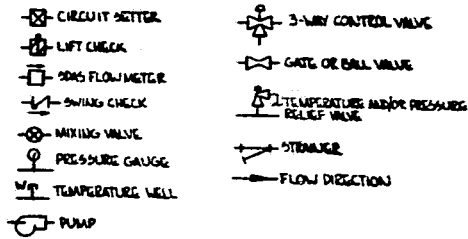 CIRCUIT SETTER
LIFT CHECK
SDAS FLOWMETER
SWING CHECK
MIXING VALVE
PRESSURE GAUGE
W TEMPERATURE WELL
PUMP
3-WAY CONTROL VALVE
GATE OR BALL VALVE
TEMPERATURE AND/OR PRESSURE
RELIEF VALVE
STRAINER
FLOW DIRECTION